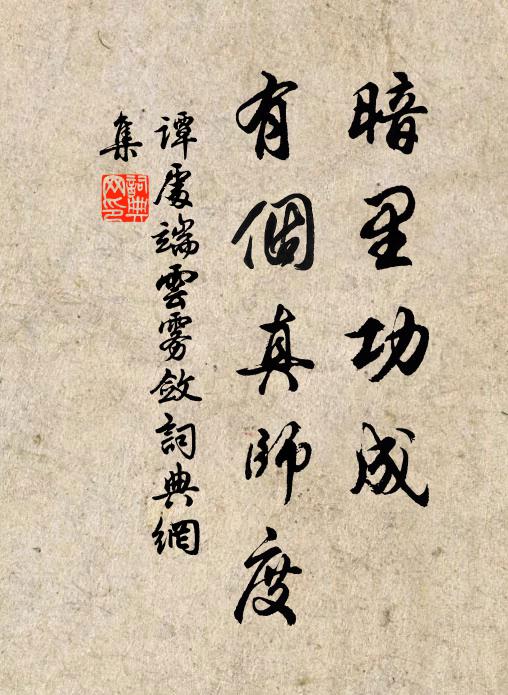 暗里功成
有個真師度
譚處端雲霧斂詞典網
集
詞典網印